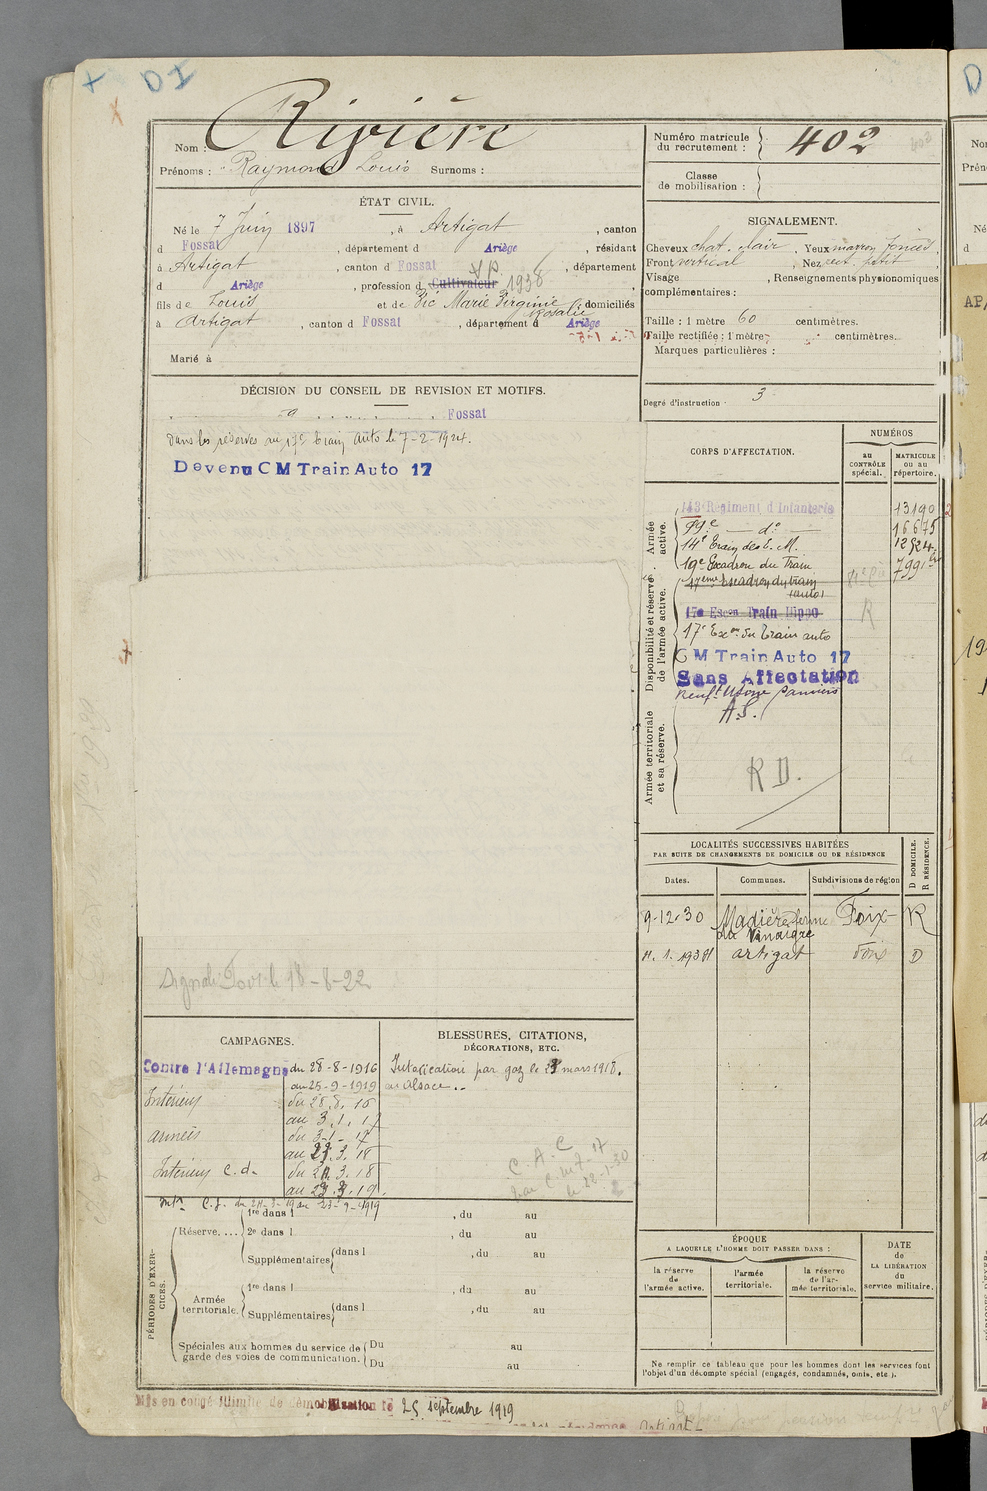 D I
Rivière
Nom :
Prénoms : Raymond Louis Surnoms :
Numéro matricule
du recrutement : 402
Classe
de mobilisation :
ÉTAT CIVIL.
Né le 7 Juin 1897, à Artigat, canton
d Fossat, département d Ariège, résidant
à Artigat, canton d Fossat, département
d Ariège, profession d Cultivateur 1938
fils de Louis et de Pic Marie Virginie Rosalie, domiciliés
à Artigat, canton d Fossat, département d Ariège
Marié à
SIGNALEMENT.
Cheveux chat. clair Yeux marron foncés
Front vertical, Nez rect. petit,
Visage, Renseignements physionomiques
complémentaires :
Taille : 1 mètre 60 centimètres.
Taille rectifiée : 1 mètre centimètres.
Marques particulières :
Degré d'instruction : 3
DÉCISION DU CONSEIL DE REVISION ET MOTIFS.
Fossat
Dans les réserves au 17e train auto le 7-2-1924.
Devenu C M Train Auto 17
CORPS D'AFFECTATION.
NUMÉROS
au
CONTRÔLE
spécial.
MATRICULE
ou au
répertoire.
Armée
active.
143e Regiment d'Infanterie 13190
99e — do — 16675
14e Train des E. M. 12524
19e Escadron du Train 7991 bis
Disponibilité et réserve
de l'armée active.
17ème Escadron du train
(auto)
17e Escon Train Hippo R
17e Escon du Train auto
C M Train Auto 17
Sans Affectation
A.S.
Armée territoriale
et sa réserve.
R D.
LOCALITÉS SUCCESSIVES HABITÉES
PAR SUITE DE CHANGEMENTS DE DOMICILE OU DE RÉSIDENCE
D DOMICILE.
R RÉSIDENCE.
Dates. Communes. Subdivisions de région
9-12-30 Madière ferme Foix R
du Vinaigre
11.1.1938 artigat Foix D
18-8-22
CAMPAGNES.
Contre l'Allemagne du 28-8-1916
au 25-9-1919
Intérieur du 28.8.16
au 3.1.17
armées du 3-1-17
au 23.3.18
Intérieur C.d. du 24.3.18
BLESSURES, CITATIONS,
DÉCORATIONS, ETC.
Intoxication par gaz le 23 mars 1918.
en Alsace.
C. A. C
PÉRIODES D'EXERCICES.
Réserve, ....
1re dans l , du au
2e dans l , du au
Supplémentaires dans l , du au
Armée
territoriale.
1re dans l , du au
Supplémentaires dans l , du au
Spéciales aux hommes du service de
garde des voies de communication.
Du au
Du au
ÉPOQUE
A LAQUELLE L'HOMME DOIT PASSER DANS :
la réserve
de
l'armée active.
l'armée
territoriale.
la réserve
de l'ar-
mée territoriale.
DATE
de
LA LIBÉRATION
du
service militaire.
Ne remplir ce tableau que pour les hommes dont les services font
l'objet d'un décompte spécial (engagés, condamnés, omis, etc.).
Mis en congé illimité de démobilisation le 25 septembre 1919